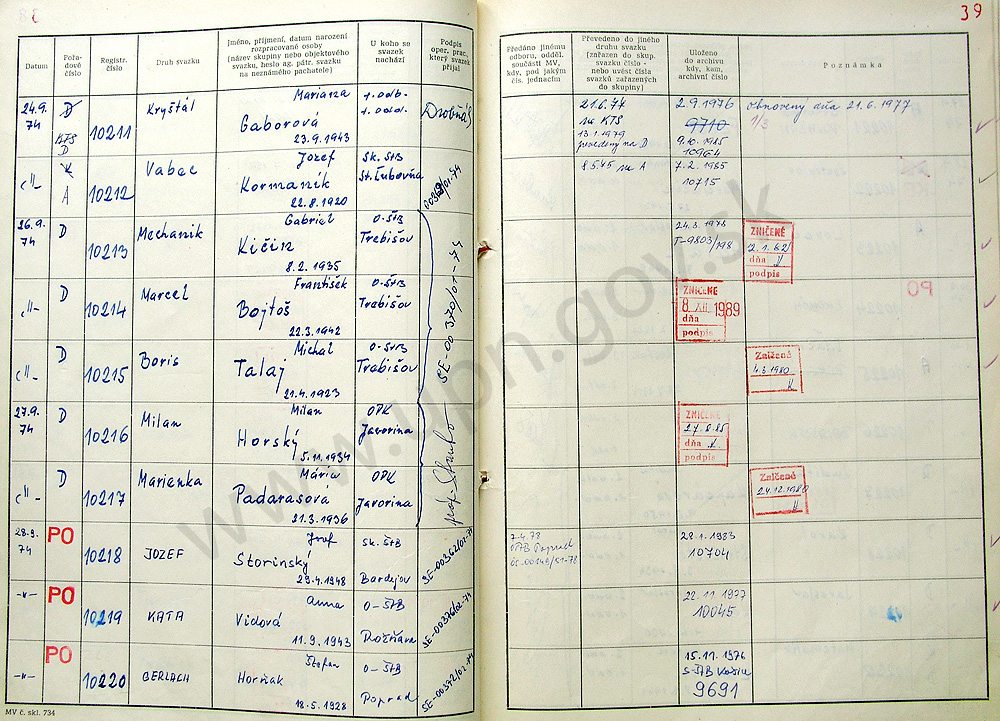 39
Datum
Pořadové číslo
Registr. číslo
Druh svazku
Jméno, příjmení, datum narození rozpracované osoby (název skupiny nebo objektového svazku, heslo ag. pátr. svazku na neznámého pachatele)
U koho se svazek nachází
Podpis oper. prac., který svazek přijal
Předáno jinému odboru, odděl. součásti MV, kdy, pod jakým čís. jednacím
Převedeno do jiného druhu svazku (zařazen do skup. svazku číslo - nebo uvést čísla svazků zařazených do skupiny)
Uloženo do archivu kdy, kam, archivní číslo
Poznámka
24.9. 74
D
KTS
D
10211
Kryštál
Marianna
Gaborová
23.9.1943
1. odb.
1. odd.
21.6.77
na KTS
13.1.1979
na D
2.9.1976
9710
9.10.1985
10964
obnovený dňa 21.6.1977
1/3
-"-
A
10212
Vabec
Jozef
Kormaník
22.8.1920
Sk. ŠtB
St. Ľubovňa
8.5.75 na A
7.2.1985
10715
26.9. 74
D
10213
Mechanik
Gabriel
Kičin
8.2.1935
O-ŠtB
Trebišov
24.3.1976
T-9803/
ZNIČENÉ
2.1.82
dňa
podpis
-"-
D
10214
Marcel
František
Bojtoš
22.3.1942
O-ŠtB
Trebišov
ZNIČENÉ
8. XII. 1989
dňa
podpis
-"-
D
10215
Boris
Michal
Talaj
21.4.1923
O-ŠtB
Trebišov
SE-00370/01-74
Zničené
4.3.1980
27.9. 74
D
10216
Milan
Milan
Horský
5.11.1934
OPK
Javorina
ZNIČENÉ
27.8.85
dňa
podpis
-"-
D
10217
Marienka
Mária
Padarasová
21.3.1936
OPK
Javorina
Zničené
24.12.1980
28.9. 74
PO
10218
JOZEF
Jozef
Storinský
29.4.1948
Sk. ŠtB
Bardejov
SE-00362/02-74
7.4.78
OŠtB Poprad
28.1.1983
10704
-"-
PO
10219
KATA
Anna
Vidová
11.9.1943
O-ŠtB
Rožňava
SE-00376/02-74
22.11.1977
10045
-"-
PO
10220
GERLACH
Štefan
Horňak
18.5.1928
O-ŠtB
Poprad
SE-00372/02-74
15.11.1976
S-ŠtB Košice
9691
MV č. skl. 734
www.upn.gov.sk